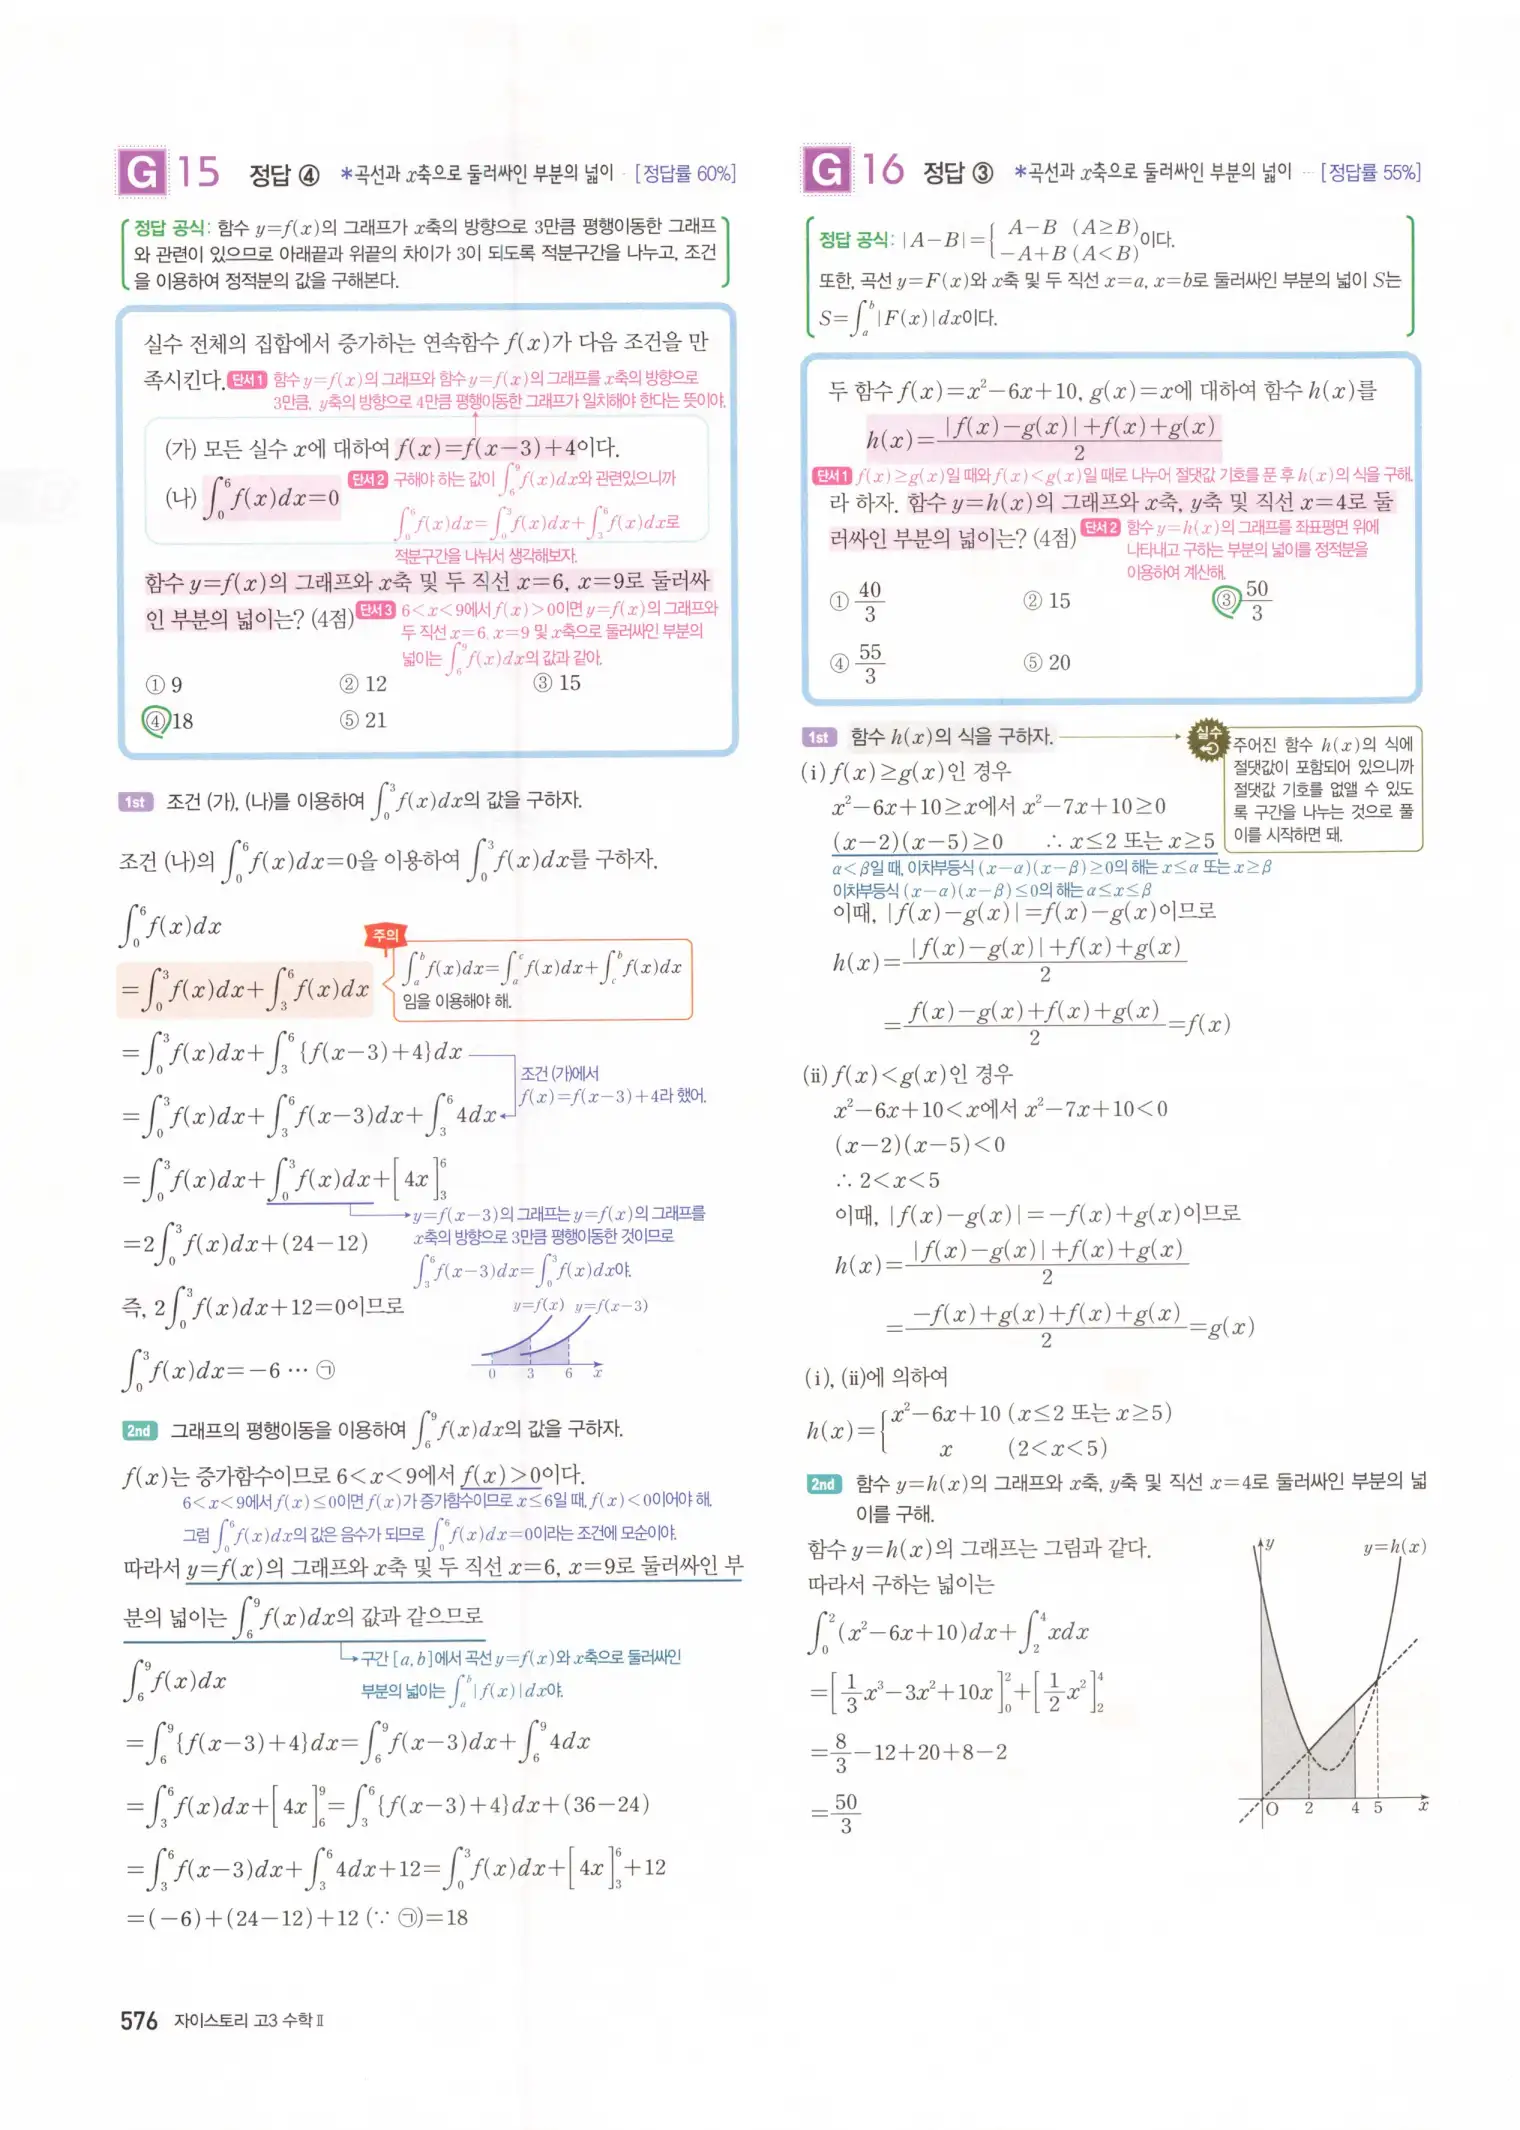 G 15 정답 ④ *곡선과 x축으로 둘러싸인 부분의 넓이 [정답률 60%]
정답 공식: 함수 y=f(x)의 그래프가 x축의 방향으로 3만큼 평행이동한 그래프
와 관련이 있으므로 아래끝과 위끝의 차이가 3이 되도록 적분구간을 나누고, 조건
을 이용하여 정적분의 값을 구해본다.
실수 전체의 집합에서 증가하는 연속함수 f(x)가 다음 조건을 만
족시킨다. 단서1 함수 y=f(x)의 그래프와 함수 y=f(x)의 그래프를 x축의 방향으로
3만큼, y축의 방향으로 4만큼 평행이동한 그래프가 일치해야 한다는 뜻이야.
(가) 모든 실수 x에 대하여 f(x)=f(x-3)+4이다.
(나) ∫₀⁶f(x)dx=0 단서2 구해야 하는 값이 ∫₆⁹f(x)dx와 관련있으니까
∫₀⁶f(x)dx=∫₀³f(x)dx+∫₃⁶f(x)dx로
적분구간을 나눠서 생각해보자.
함수 y=f(x)의 그래프와 x축 및 두 직선 x=6, x=9로 둘러싸
인 부분의 넓이는? (4점) 단서3 6<x<9에서 f(x)>0이면 y=f(x)의 그래프와
두 직선 x=6, x=9 및 x축으로 둘러싸인 부분의
넓이는 ∫₆⁹f(x)dx의 값과 같아.
① 9 ② 12 ③ 15
④ 18 ⑤ 21
1st 조건 (가), (나)를 이용하여 ∫₀³f(x)dx의 값을 구하자.
조건 (나)의 ∫₀⁶f(x)dx=0을 이용하여 ∫₀³f(x)dx를 구하자.
∫₀⁶f(x)dx
=∫₀³f(x)dx+∫₃⁶f(x)dx
주의
∫ₐᵇf(x)dx=∫ₐᶜf(x)dx+∫꜀ᵇf(x)dx
임을 이용해야 해.
=∫₀³f(x)dx+∫₃⁶{f(x-3)+4}dx
조건 (가)에서
f(x)=f(x-3)+4라 했어.
=∫₀³f(x)dx+∫₃⁶f(x-3)dx+∫₃⁶4dx
=∫₀³f(x)dx+∫₀³f(x)dx+[4x]₃⁶
y=f(x-3)의 그래프는 y=f(x)의 그래프를
x축의 방향으로 3만큼 평행이동한 것이므로
∫₃⁶f(x-3)dx=∫₀³f(x)dx야.
=2∫₀³f(x)dx+(24-12)
즉, 2∫₀³f(x)dx+12=0이므로
∫₀³f(x)dx=-6 … ㉠
y=f(x) y=f(x-3)
0 3 6 x
2nd 그래프의 평행이동을 이용하여 ∫₆⁹f(x)dx의 값을 구하자.
f(x)는 증가함수이므로 6<x<9에서 f(x)>0이다.
6<x<9에서 f(x)≤0이면 f(x)가 증가함수이므로 x≤6일 때, f(x)<0이어야 해.
그럼 ∫₀⁶f(x)dx의 값은 음수가 되므로 ∫₀⁶f(x)dx=0이라는 조건에 모순이야.
따라서 y=f(x)의 그래프와 x축 및 두 직선 x=6, x=9로 둘러싸인 부
분의 넓이는 ∫₆⁹f(x)dx의 값과 같으므로
구간 [a, b]에서 곡선 y=f(x)와 x축으로 둘러싸인
부분의 넓이는 ∫ₐᵇ|f(x)|dx야.
∫₆⁹f(x)dx
=∫₆⁹{f(x-3)+4}dx=∫₆⁹f(x-3)dx+∫₆⁹4dx
=∫₃⁶f(x)dx+[4x]₆⁹=∫₃⁶{f(x-3)+4}dx+(36-24)
=∫₃⁶f(x-3)dx+∫₃⁶4dx+12=∫₀³f(x)dx+[4x]₃⁶+12
=(-6)+(24-12)+12 (∵ ㉠)=18
576 자이스토리 고3 수학Ⅱ
G 16 정답 ③ *곡선과 x축으로 둘러싸인 부분의 넓이 … [정답률 55%]
정답 공식: |A-B|={ A-B (A≥B)
-A+B (A<B) 이다.
또한, 곡선 y=F(x)와 x축 및 두 직선 x=a, x=b로 둘러싸인 부분의 넓이 S는
S=∫ₐᵇ|F(x)|dx이다.
두 함수 f(x)=x²-6x+10, g(x)=x에 대하여 함수 h(x)를
h(x)=(|f(x)-g(x)|+f(x)+g(x))/2
단서1 f(x)≥g(x)일 때와 f(x)<g(x)일 때로 나누어 절댓값 기호를 푼 후 h(x)의 식을 구해.
라 하자. 함수 y=h(x)의 그래프와 x축, y축 및 직선 x=4로 둘
러싸인 부분의 넓이는? (4점) 단서2 함수 y=h(x)의 그래프를 좌표평면 위에
나타내고 구하는 부분의 넓이를 정적분을
이용하여 계산해.
① 40/3 ② 15 ③ 50/3
④ 55/3 ⑤ 20
1st 함수 h(x)의 식을 구하자.
실수
주어진 함수 h(x)의 식에
절댓값이 포함되어 있으니까
절댓값 기호를 없앨 수 있도
록 구간을 나누는 것으로 풀
이를 시작하면 돼.
(ⅰ) f(x)≥g(x)인 경우
x²-6x+10≥x에서 x²-7x+10≥0
(x-2)(x-5)≥0 ∴ x≤2 또는 x≥5
α<β일 때, 이차부등식 (x-α)(x-β)≥0의 해는 x≤α 또는 x≥β
이차부등식 (x-α)(x-β)≤0의 해는 α≤x≤β
이때, |f(x)-g(x)|=f(x)-g(x)이므로
h(x)=(|f(x)-g(x)|+f(x)+g(x))/2
=(f(x)-g(x)+f(x)+g(x))/2=f(x)
(ⅱ) f(x)<g(x)인 경우
x²-6x+10<x에서 x²-7x+10<0
(x-2)(x-5)<0
∴ 2<x<5
이때, |f(x)-g(x)|=-f(x)+g(x)이므로
h(x)=(|f(x)-g(x)|+f(x)+g(x))/2
=(-f(x)+g(x)+f(x)+g(x))/2=g(x)
(ⅰ), (ⅱ)에 의하여
h(x)={ x²-6x+10 (x≤2 또는 x≥5)
x (2<x<5)
2nd 함수 y=h(x)의 그래프와 x축, y축 및 직선 x=4로 둘러싸인 부분의 넓
이를 구해.
함수 y=h(x)의 그래프는 그림과 같다.
따라서 구하는 넓이는
∫₀²(x²-6x+10)dx+∫₂⁴xdx
=[1/3x³-3x²+10x]₀²+[1/2x²]₂⁴
=8/3-12+20+8-2
=50/3
y y=h(x)
O 2 4 5 x